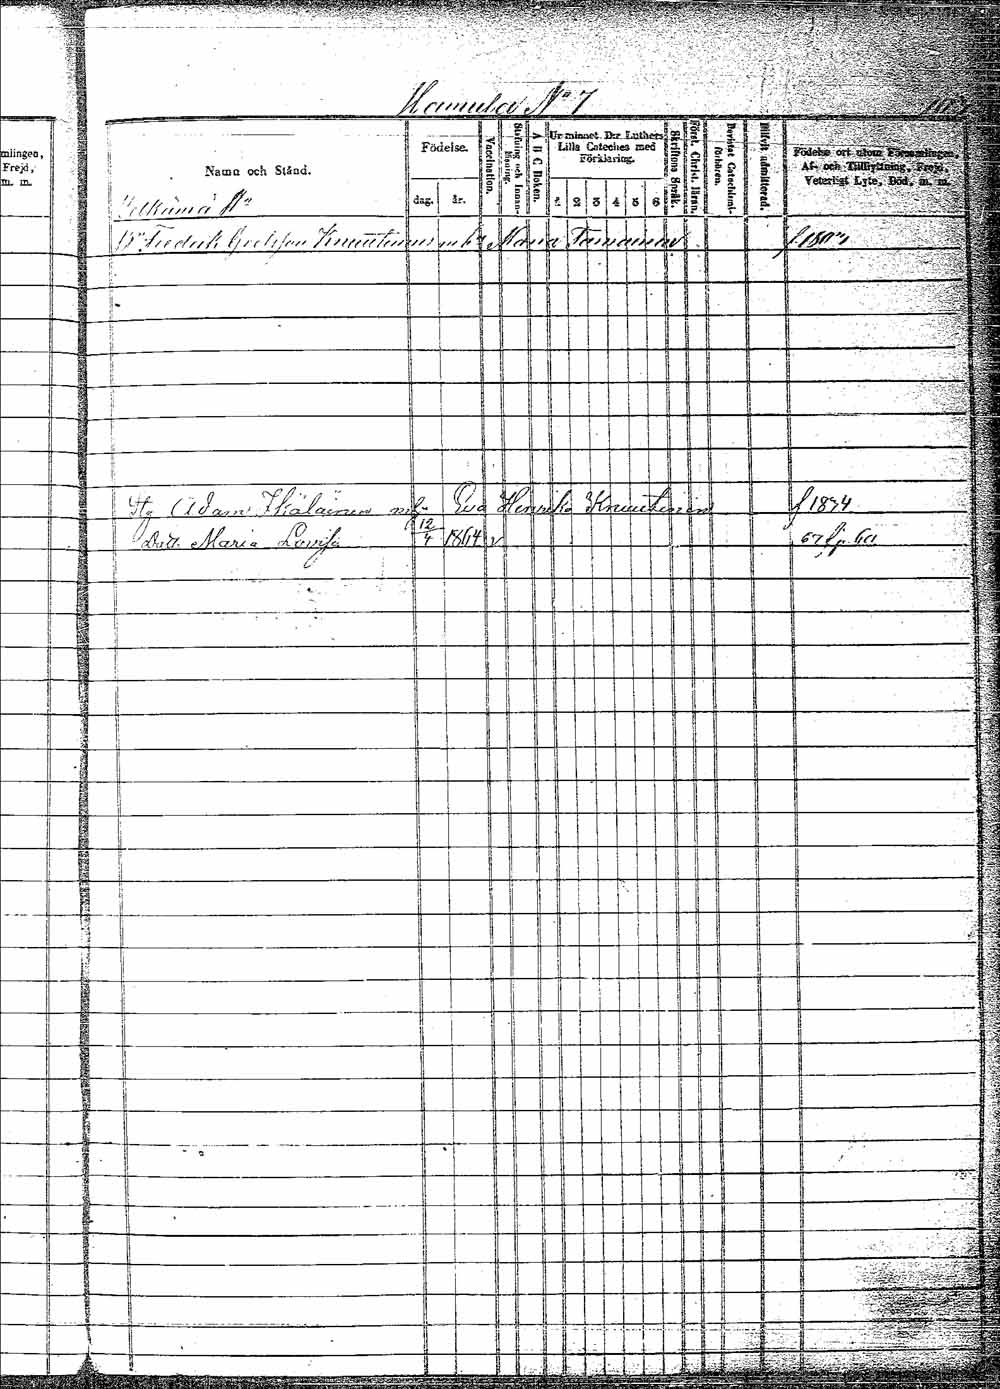 Hamula No 7
mlingen,
Frejd,
m. m.
Namn och Stånd.
Födelse.
dag. år.
Vaccination.
Stafning och Innan-läsning.
A B C Boken.
Ur minnet Der Luthers
Lilla Cateches med
Förklaring.
1 2 3 4 5 6
Skriftens Språk.
Först. Christ. läran.
Bevistat Catechismi-förhören.
Blifvit admitterad.
Födelse ort utom Församlingen,
Af- och Tillflyttning, Frejd,
Veterligt Lyte, Död, m. m.
Fredrik Knuutinen Maria
Adam Ikäläinen Eva Henrika Knuutinen f 1874
Dott. Maria Lovisa 12/4 1864 v